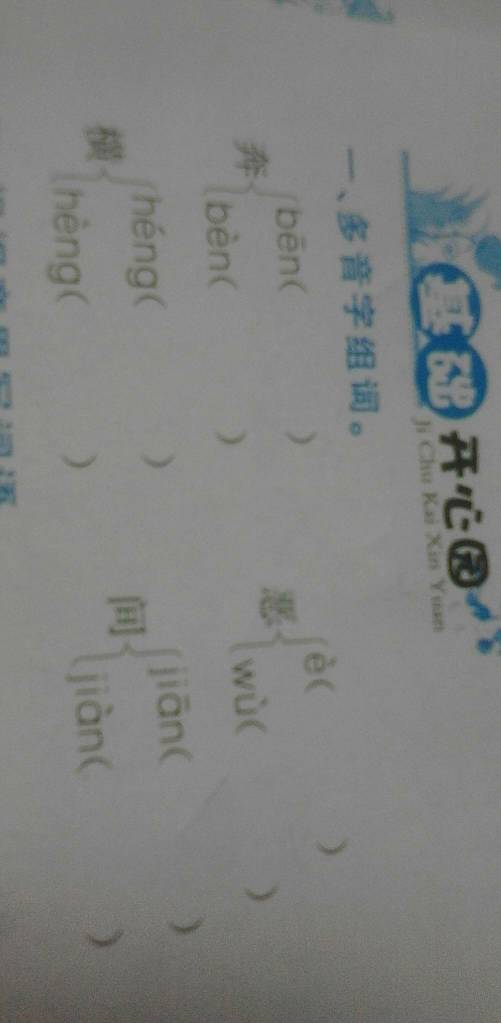 基础开心园
Ji Chu Kai Xin Yuan
一、多音字组词。
奔 bēn( ) 恶 è( )
bèn( ) wù( )
横 héng( ) 间 jiān( )
hèng( ) jiàn( )